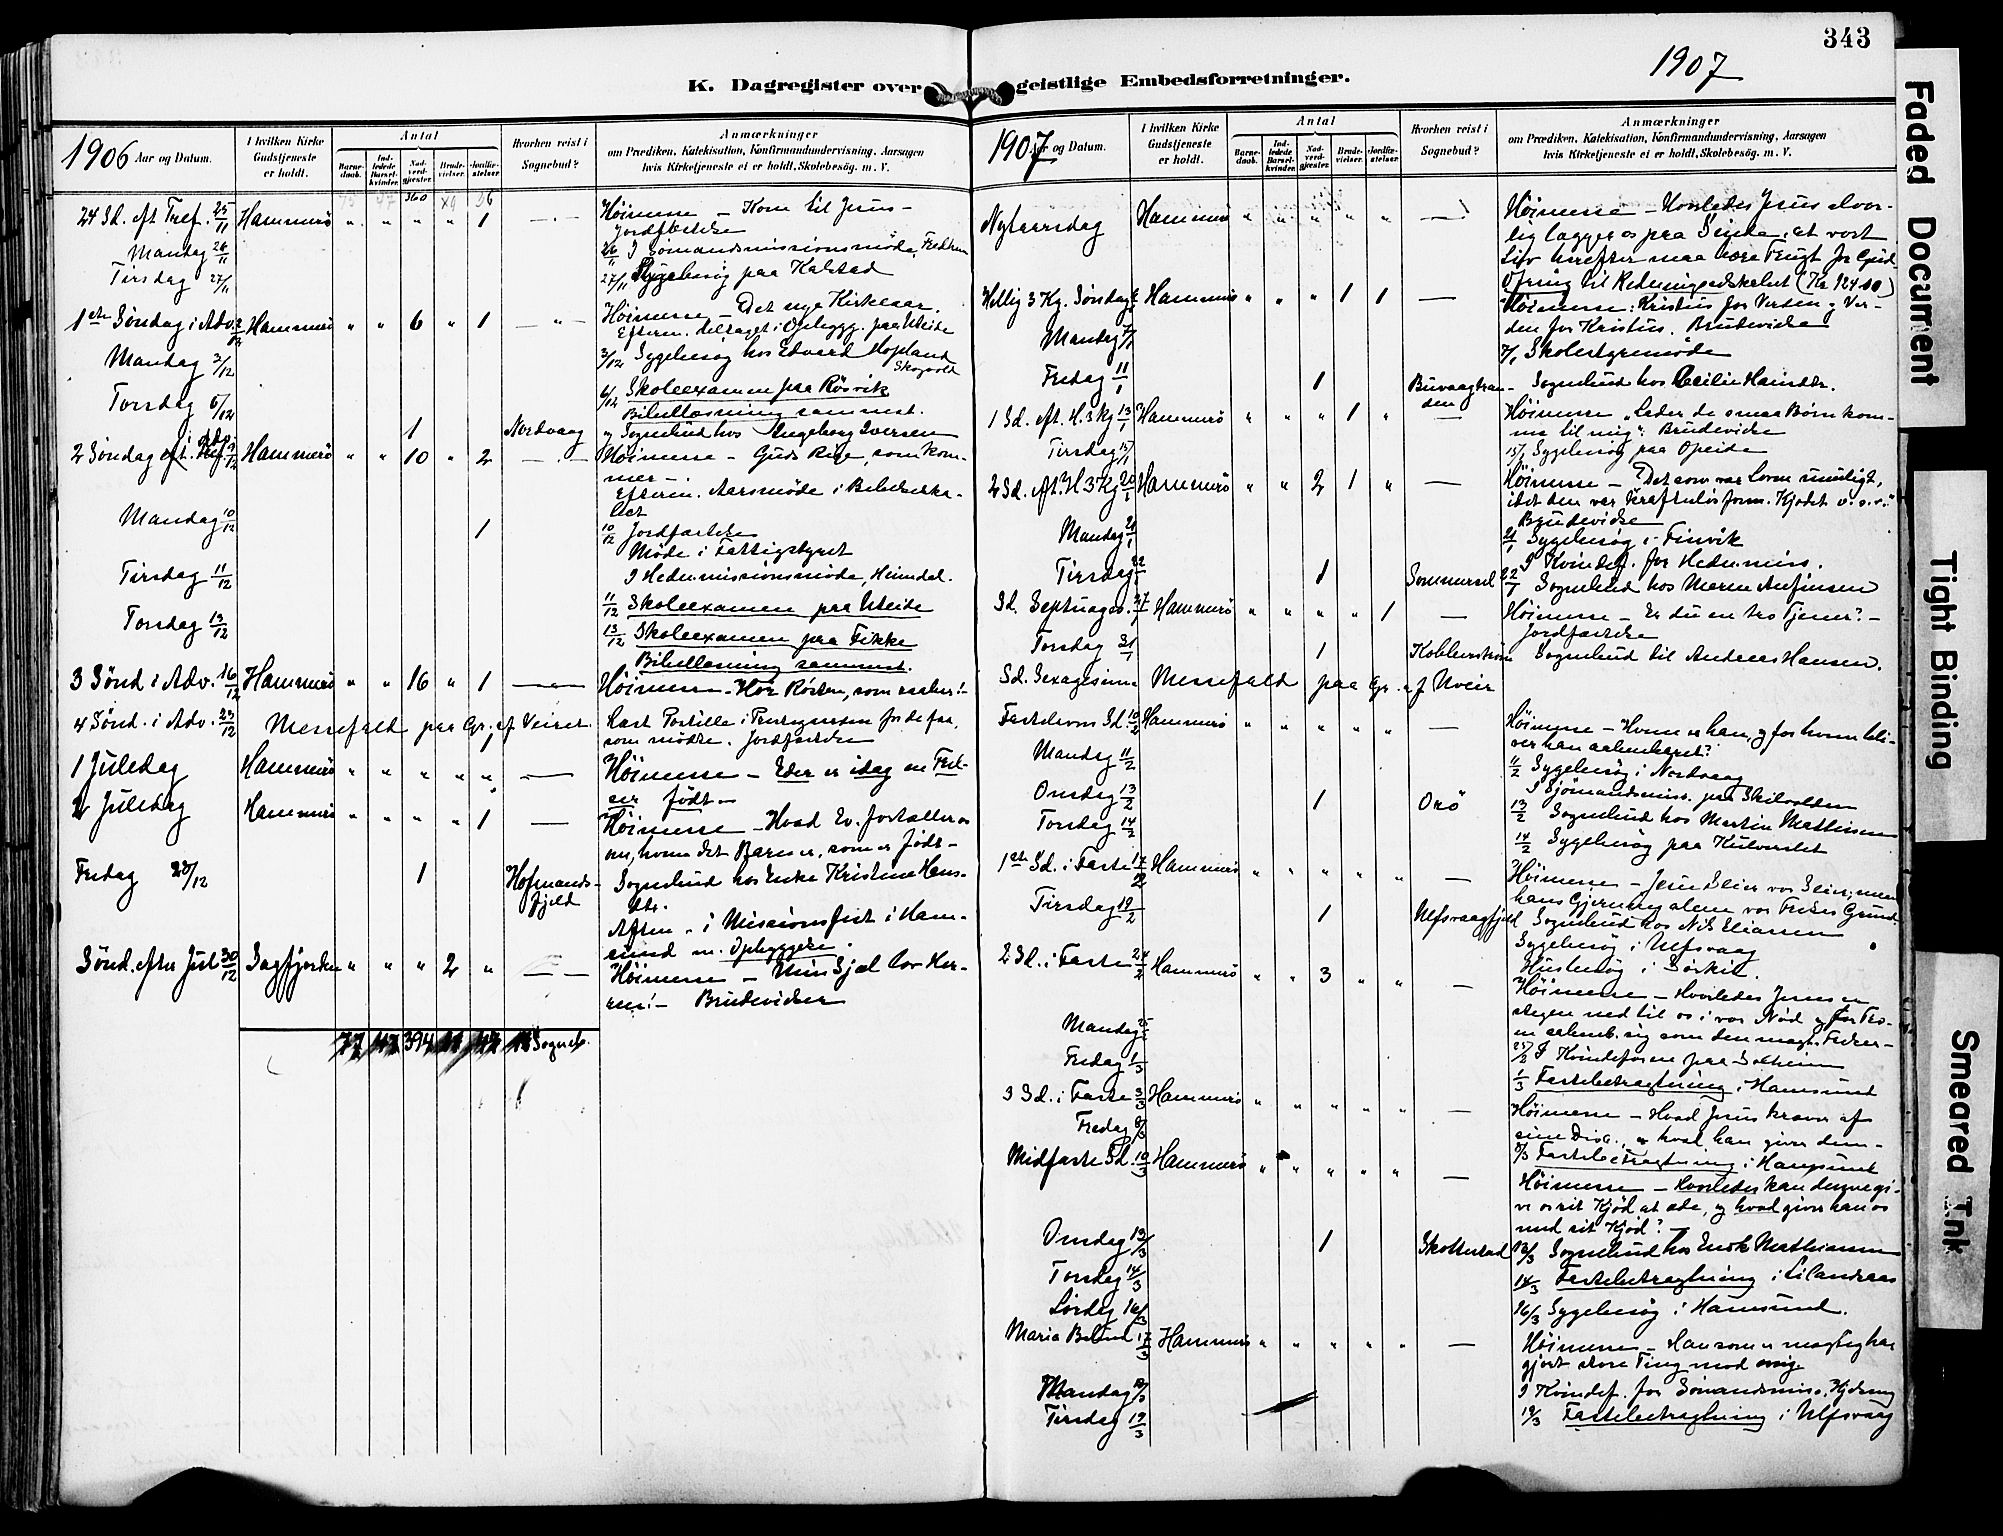 343
1907
K. Dagregister over geistlige Embedsforretninger.
1906 Aar og Datum.
I hvilken Kirke Gudstjeneste er holdt.
Antal
Barnedaab.
Indledede Barselkvinder.
Nadverdgjester.
Brudevielser.
Jordfæstelser.
Hvorhen reist i Sognebud?
Anmærkninger
om Prædiken, Katekisation, Konfirmandundervisning, Aarsagen
hvis Kirketjeneste ei er holdt, Skolebesög, m. V.
360
24 Sd. eft Tref. 25/11 Hammerö " " " " 1 — Höimesse – Kom til Jesus –
Jordfæstelse
Mandag 26/11 26/11 I Sömandsmissionsmöde,
Tirsdag 27/11 27/11 Sygebesög paa Kalstad
1ste Söndag i Adv. 2/12 Hammerö " " 6 " 1 — " — Höimesse – Det nye Kirkeaar.
Efterm. deltaget i Opbygg. paa Uteide
Mandag 3/12 3/12 Sygebesög hos Edvard Hopland
Skogvold
Torsdag 6/12 6/12 Skoleexamen paa Rösvik
Bibellæsning sammest.
1 Nordvaag og Sognebud hos Ingeborg Iversen
2 Söndag i Adv. 9/12 Hammerö " " 10 " 2 — Höimesse – Guds Rige, som kom-
mer –.
Efterm. Aarsmöde i Bibelselska-
bet
Mandag 10/12 1 10/12 Jordfæstelse
Möde i Fattigstyret
I Hedn.missionsmöde, Heimdal.
Tirsdag 11/12 11/12 Skoleexamen paa Uteide
Torsdag 13/12 13/12 Skoleexamen paa Fikke
Bibellæsning sammest.
3 Sönd i Adv. 16/12 Hammerö " " 16 " 1 — Höimesse – Hör Rösten, som raaber!–
4 Sönd. i Adv. 23/12 Messefald paa Gr. af Veiret. Læst Postille i Præstegaarden for de faa,
1 som mödte. Jordfæstelse
1 Juledag Hammerö " " " " " — Höimesse – Eder er idag en Frel-
ser födt –
2 Juledag Hammerö " " " " 1 — Höimesse – Hvad Ev. fortæller os
om, hvem det Barn er, som er födt –
Fredag 28/12 1 Hofmands-
fjeld Sognebud hos Enke Kristine Hans-
dtr.
Aften – i Missionsfest i Ham-
sund m. Opbyggelse.
Sönd. efter Jul 30/12 Sagfjorden " " " 2 " — Höimesse – Min Sjæl lov Her-
ren! – Brudevielser
77 47 394 21 42 18 Sogneb.
1907 Aar og Datum.
I hvilken Kirke Gudstjeneste er holdt.
Antal
Barnedaab.
Indledede Barselkvinder.
Nadverdgjester.
Brudevielser.
Jordfæstelser.
Hvorhen reist i Sognebud?
Anmærkninger
om Prædiken, Katekisation, Konfirmandundervisning, Aarsagen
hvis Kirketjeneste ei er holdt, Skolebesög, m. V.
Nytaarsdag Hammerö " " " " " — Höimesse – Hvorledes Jesus alvor-
lig lægger os paa Sinde, at vort
Liv herefter maa bære Frugt for Gud.
Ofring til Redningsselskabet (Kr 12400)
Hellig 3 Kg. Söndag 6/1 Hammerö " " " 1 1 — Höimesse: Kristus for Verden og Ver-
den for Kristus. Brudevielse
Mandag 7/1 7/1 Skolestyremöde
Fredag 11/1 1 Buvaagstran-
den Sognebud hos Cecilie Hansdtr.
1 Sd. eft. H. 3 Kg 13/1 Hammerö " " " 1 " — Höimesse "Lader de smaa Börn kom-
me til mig": Brudevielse
Tirsdag 15/1 15/1 Sygebesög paa Opeide
2 Sd. eft. H 3 Kg 20/1 Hammerö " " 2 1 " — Höimesse – Det som var Loven umuligt,
idet den var kraftelös form. Kjödet o. s. v."
Brudevielse
Mandag 21/1 21/1 Sygebesög i Finvik
I Kvindef. for Hedn.miss.
Tirsdag 22/1 1 Sommersel 22/1 Sognebud hos Maren Anfinsen
Sd. Septuages. 27/1 Hammerö " " " " 1 — Höimesse – Er du en tro Tjener? –
Jordfæstelse
Torsdag 31/1 1 Sognebud til Andreas Hansen.
Sd. Sexagesima Messefald paa Gr. af Uveir
Fastelavns Sd. 10/2 Hammerö " " " " " — Höimesse – Hvem er han, og for hvem bli-
ver han aabenbaret?
Mandag 11/2 11/2 Sygebesög i Nordvaag
I Sjömandsmiss. paa Skilvolden
Onsdag 13/2 1 Orö 13/2 Sognebud hos Martin Mathisen
Torsdag 14/2 14/2 Sygebesög paa
1ste Sd. i Faste 17/2 Hammerö " " " " " — Höimesse – Jesu Seier vor Seier; men
hans Gjerning alene vor Frelses Grund
Tirsdag 19/2 1 Ulfsvaagfjeld Sognebud hos Nils Eliassen
Sygebesög i Ulfsvaag
Husbesög i Sörkil.
2 Sd. i Faste 24/2 Hammerö " " 3 " " — Höimesse – Hvorledes Jesus er
stegen ned til os i vor Nöd og for Tro-
en aabenb. sig som den mægt. Frelser –
Mandag 25/2 25/2 I Kvindeforen paa Solheim
Fredag 1/3 1/3 Fastebetragtning i Hamsund
3 Sd. i Faste 3/3 Hammerö " " " " " — Höimesse – Hvad Jesus kræver af
sine Disc., og hvad han giver dem –
Fredag 8/3 8/3 Fastebetragtning i Hamsund
Midfaste Sd. 10/3 Hammerö " " " " " — Höimesse – Hvorledes kan denne gi-
ve os sit Kjöd at æde, og hvad giver han os
med sit Kjöd? –
Onsdag 13/3 1 Skottestad 13/3 Sognebud hos Enok Mathiassen
Torsdag 14/3 14/3 Fastebetragtning i Lilandsaas
Lördag 16/3 16/3 Sygebesög i Hamsund.
Maria Bebud 17/3 Hammerö " " " " " — Höimesse – Han som er mægtig har
gjort store Ting mod mig.
Mandag 18/3 I Kvindef. for Sömandsmis.,
Tirsdag 19/3 19/3 Fastebetragtning i Ulfsvaag
Faded Document
Tight Binding
Smeared Ink